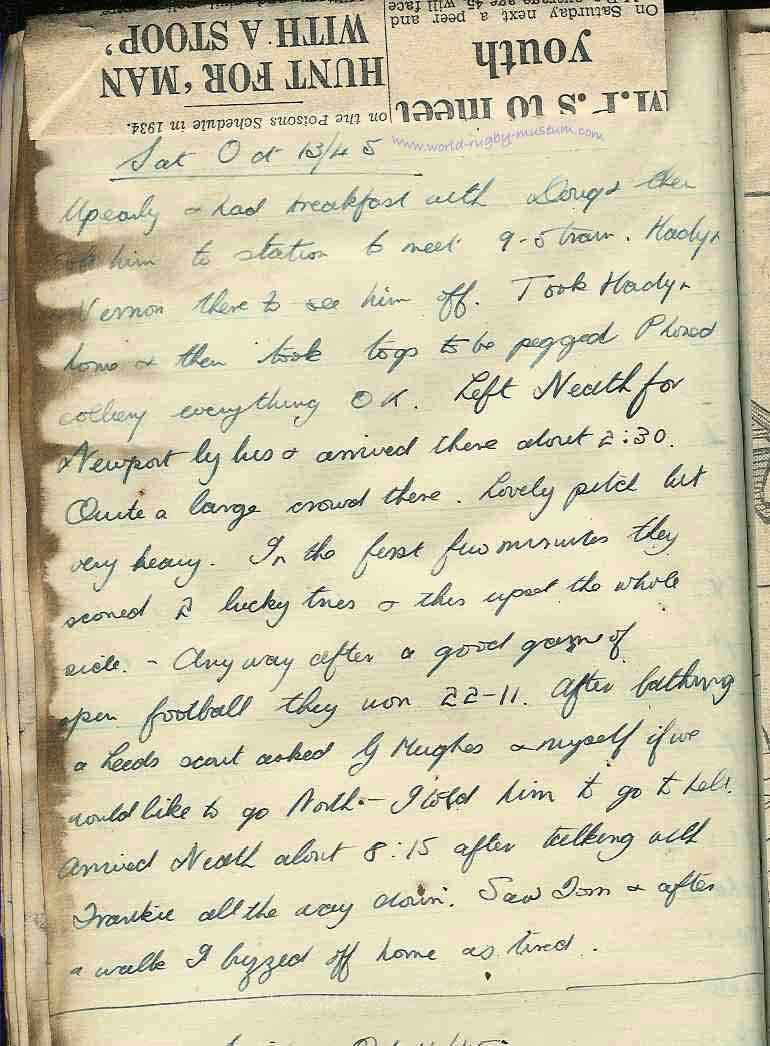 On Saturday next a peer and
youth
M.P.s to meet
WITH A STOOP'
HUNT FOR 'MAN
on the Poisons Schedule in 1934.
Sat Oct 13/45
www.world-rugby-museum.com
Up early & had breakfast with Doug & then
him to station to meet 9-5 train. Hadyn
Vernon there to see him off. Took Hadyn
home & then took togs to be pegged Phoned
colliery everything OK. Left Neath for
Newport by bus & arrived there about 2:30.
Quite a large crowd there. Lovely pitch but
very heavy. In the first few minutes they
scored 2 lucky tries & this upset the whole
side. - Anyway after a good game of
open football they won 22-11. After bathing
a Leeds scout asked G Hughes & myself if we
would like to go North - I told him to go to hell.
Arrived Neath about 8:15 after talking with
Frankie all the way down. Saw Tom & after
a walk I buzzed off home as tired.